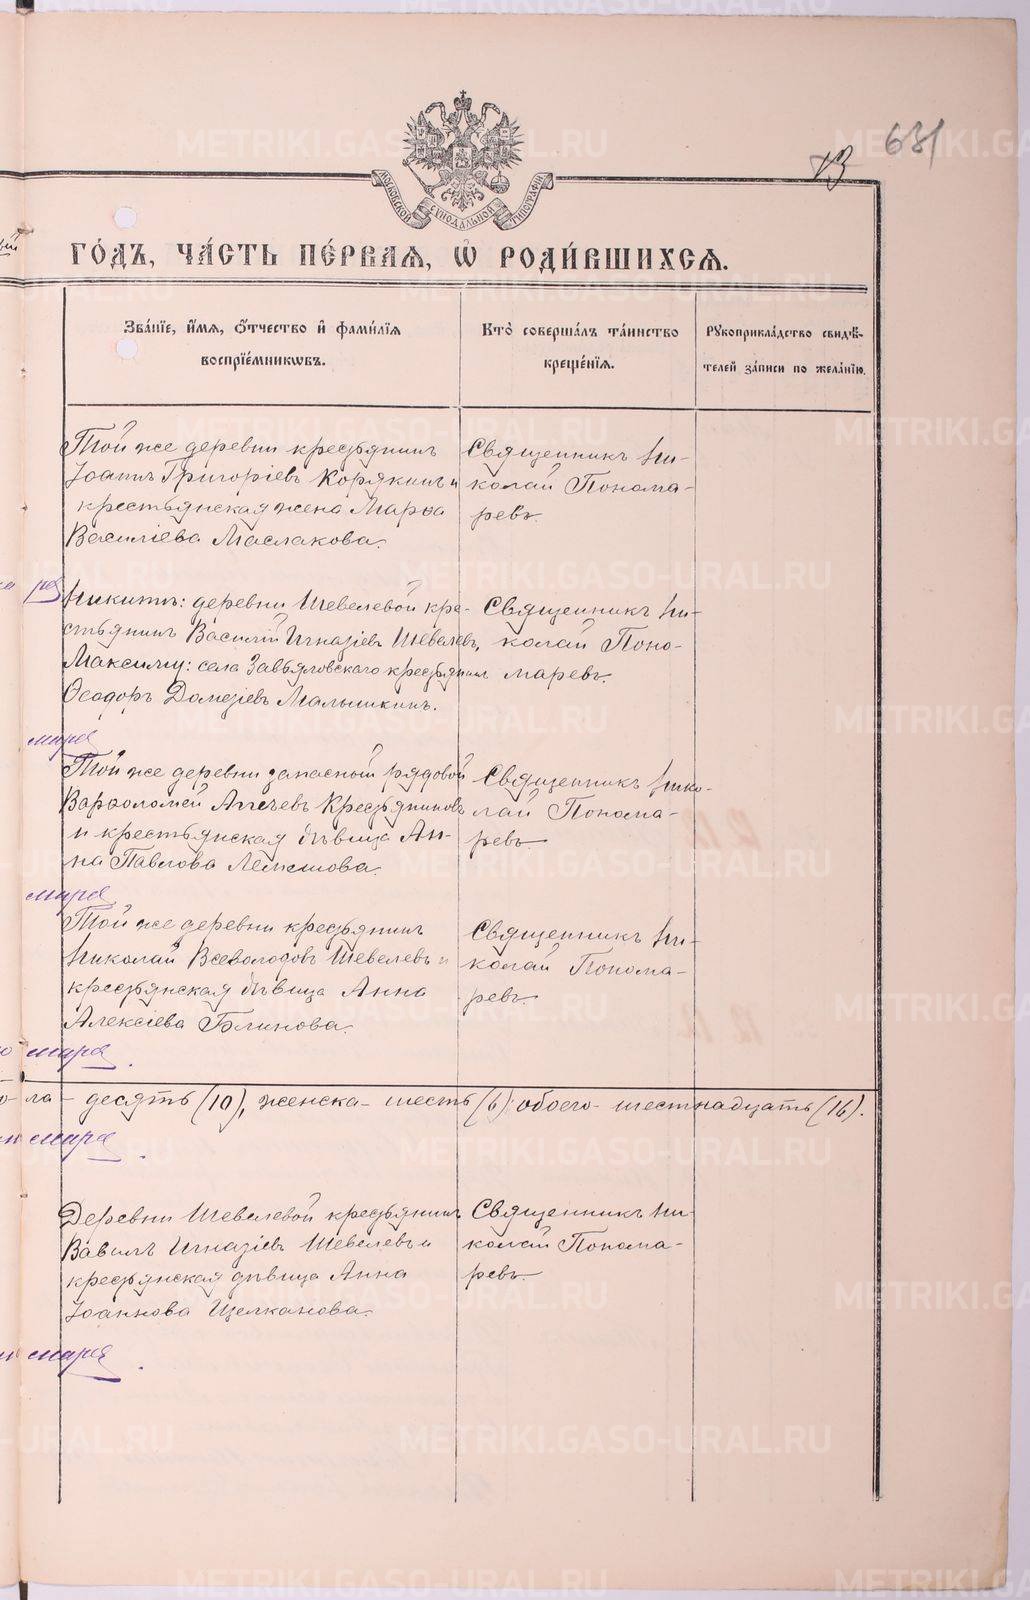 631
13
МОСКОВСКОЙ СѴНОДАЛЬНОЙ ТИПОГРАФІИ
ГО́ДЪ, ЧА́СТЬ ПЕ́РВАЯ, Ѽ РОДИ́ВШИХСЯ.
Зва́нїе, и҆́мя, ѻ҆́тчество и҆ фами́лїя
воспрїе́мникѡвъ.
Кто̀ соверша́лъ та́инство
креще́нїя.
Рꙋкоприкла́дство свидѣ́-
телей за́писи по жела́нїю.
Той же деревни крестьянинъ
Іоаннъ Григоріевъ Корякинъ и
крестьянская жена Марѳа
Василіева Маслакова.
Священникъ Ни-
колай Понома-
ревъ.
Никиты: деревни Шевелевой кре-
стьянинъ Василій Игнатіевъ Шевелевъ,
Максиму: села Завьяловскаго крестьянинъ
Ѳеодоръ Дометіевъ Малышкинъ.
Священникъ Ни-
колай Поно-
маревъ.
мира
Той же деревни запасный рядовой
Варѳоломей Крестьяниновъ
и крестьянская дѣвица Ан-
на Павлова Лемешова.
Священникъ Нико-
лай Понома-
ревъ
мира
Той же деревни крестьянинъ
Николай Всеволодовъ Шевелевъ и
крестьянская дѣвица Анна
Алексіева Блинова.
Священникъ Ни-
колай Понома-
ревъ
мира.
ла - десять (10), женска - шесть (6); обоего - шестнадцать (16).
мира.
Деревни Шевелевой крестьянинъ
Вавилъ Игнатіевъ Шевелевъ и
крестьянская дѣвица Анна
Іоаннова Щелканова.
Священникъ Ни-
колай Понома-
ревъ.
мира.
METRIKI.GASO-URAL.RU